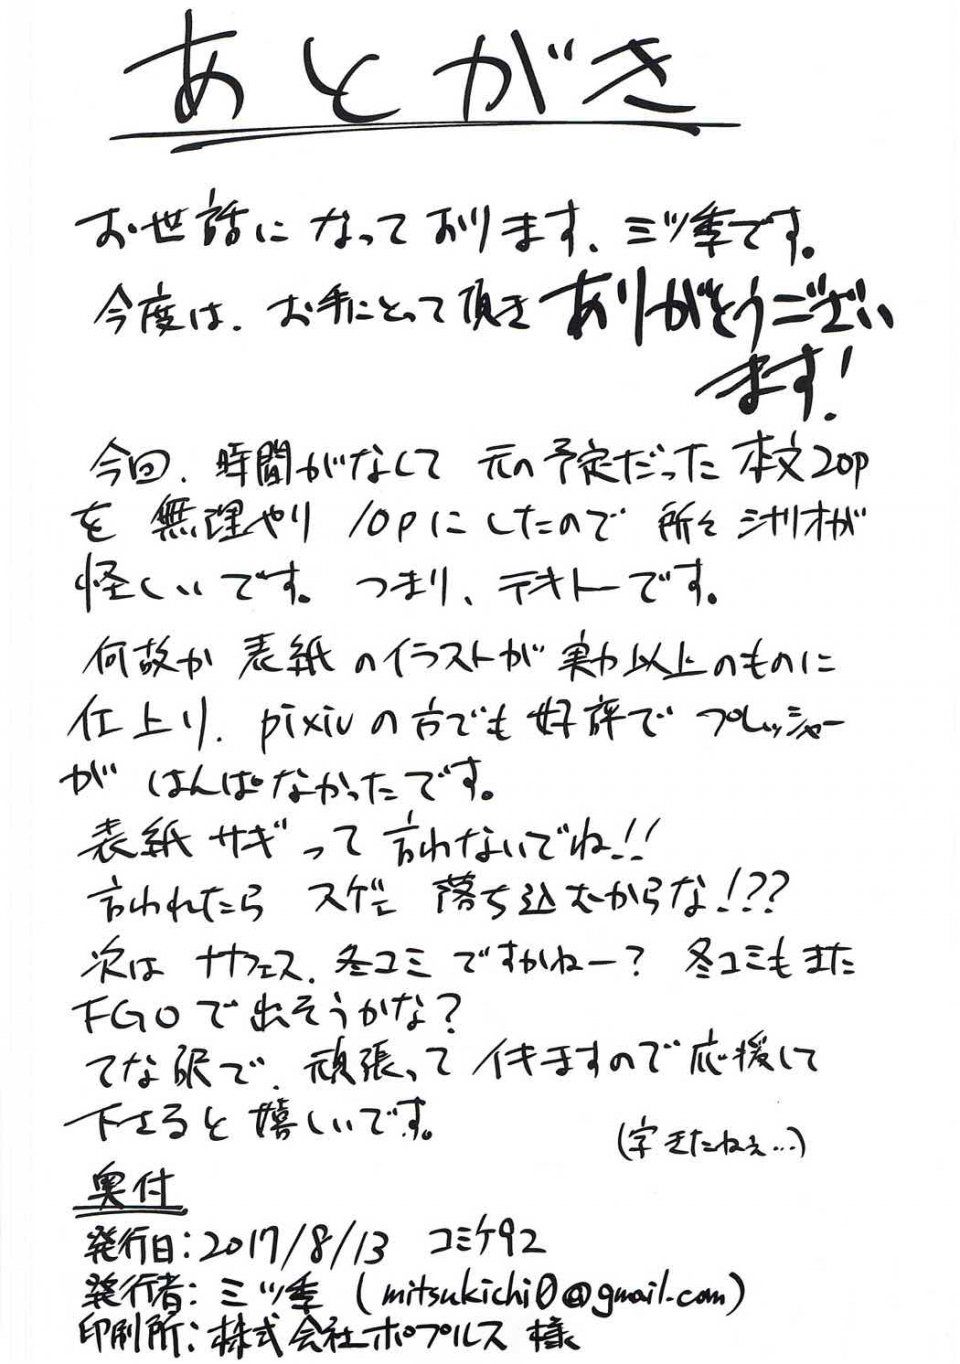 あとがき
お世話になっております、ミツ季です。
今度は、お手にとって頂きありがとうござい
ます!
今回、時間がなくて 元の予定だった 本文20p
を 無理やり 10pにしたので 所々 シナリオが
怪しいです。 つまり、テキトーです。
何故か 表紙のイラストが 実力以上のものに
仕上り、pixivの方でも 好評で プレッシャー
が はんぱなかったです。
表紙サギって 言わないでね!!
言われたら スゲェ 落ち込むからな!??
次は サナフェス、冬コミ ですかねー? 冬コミもまた
FGOで出そうかな?
てな訳で、頑張って イキますので 応援して
下さると 嬉しいです。
(字きたねぇ…)
奥付
発行日:2017/8/13 コミケ92
発行者:ミツ季 (mitsukichi0@gmail.com)
印刷所:株式会社ポプルス 様